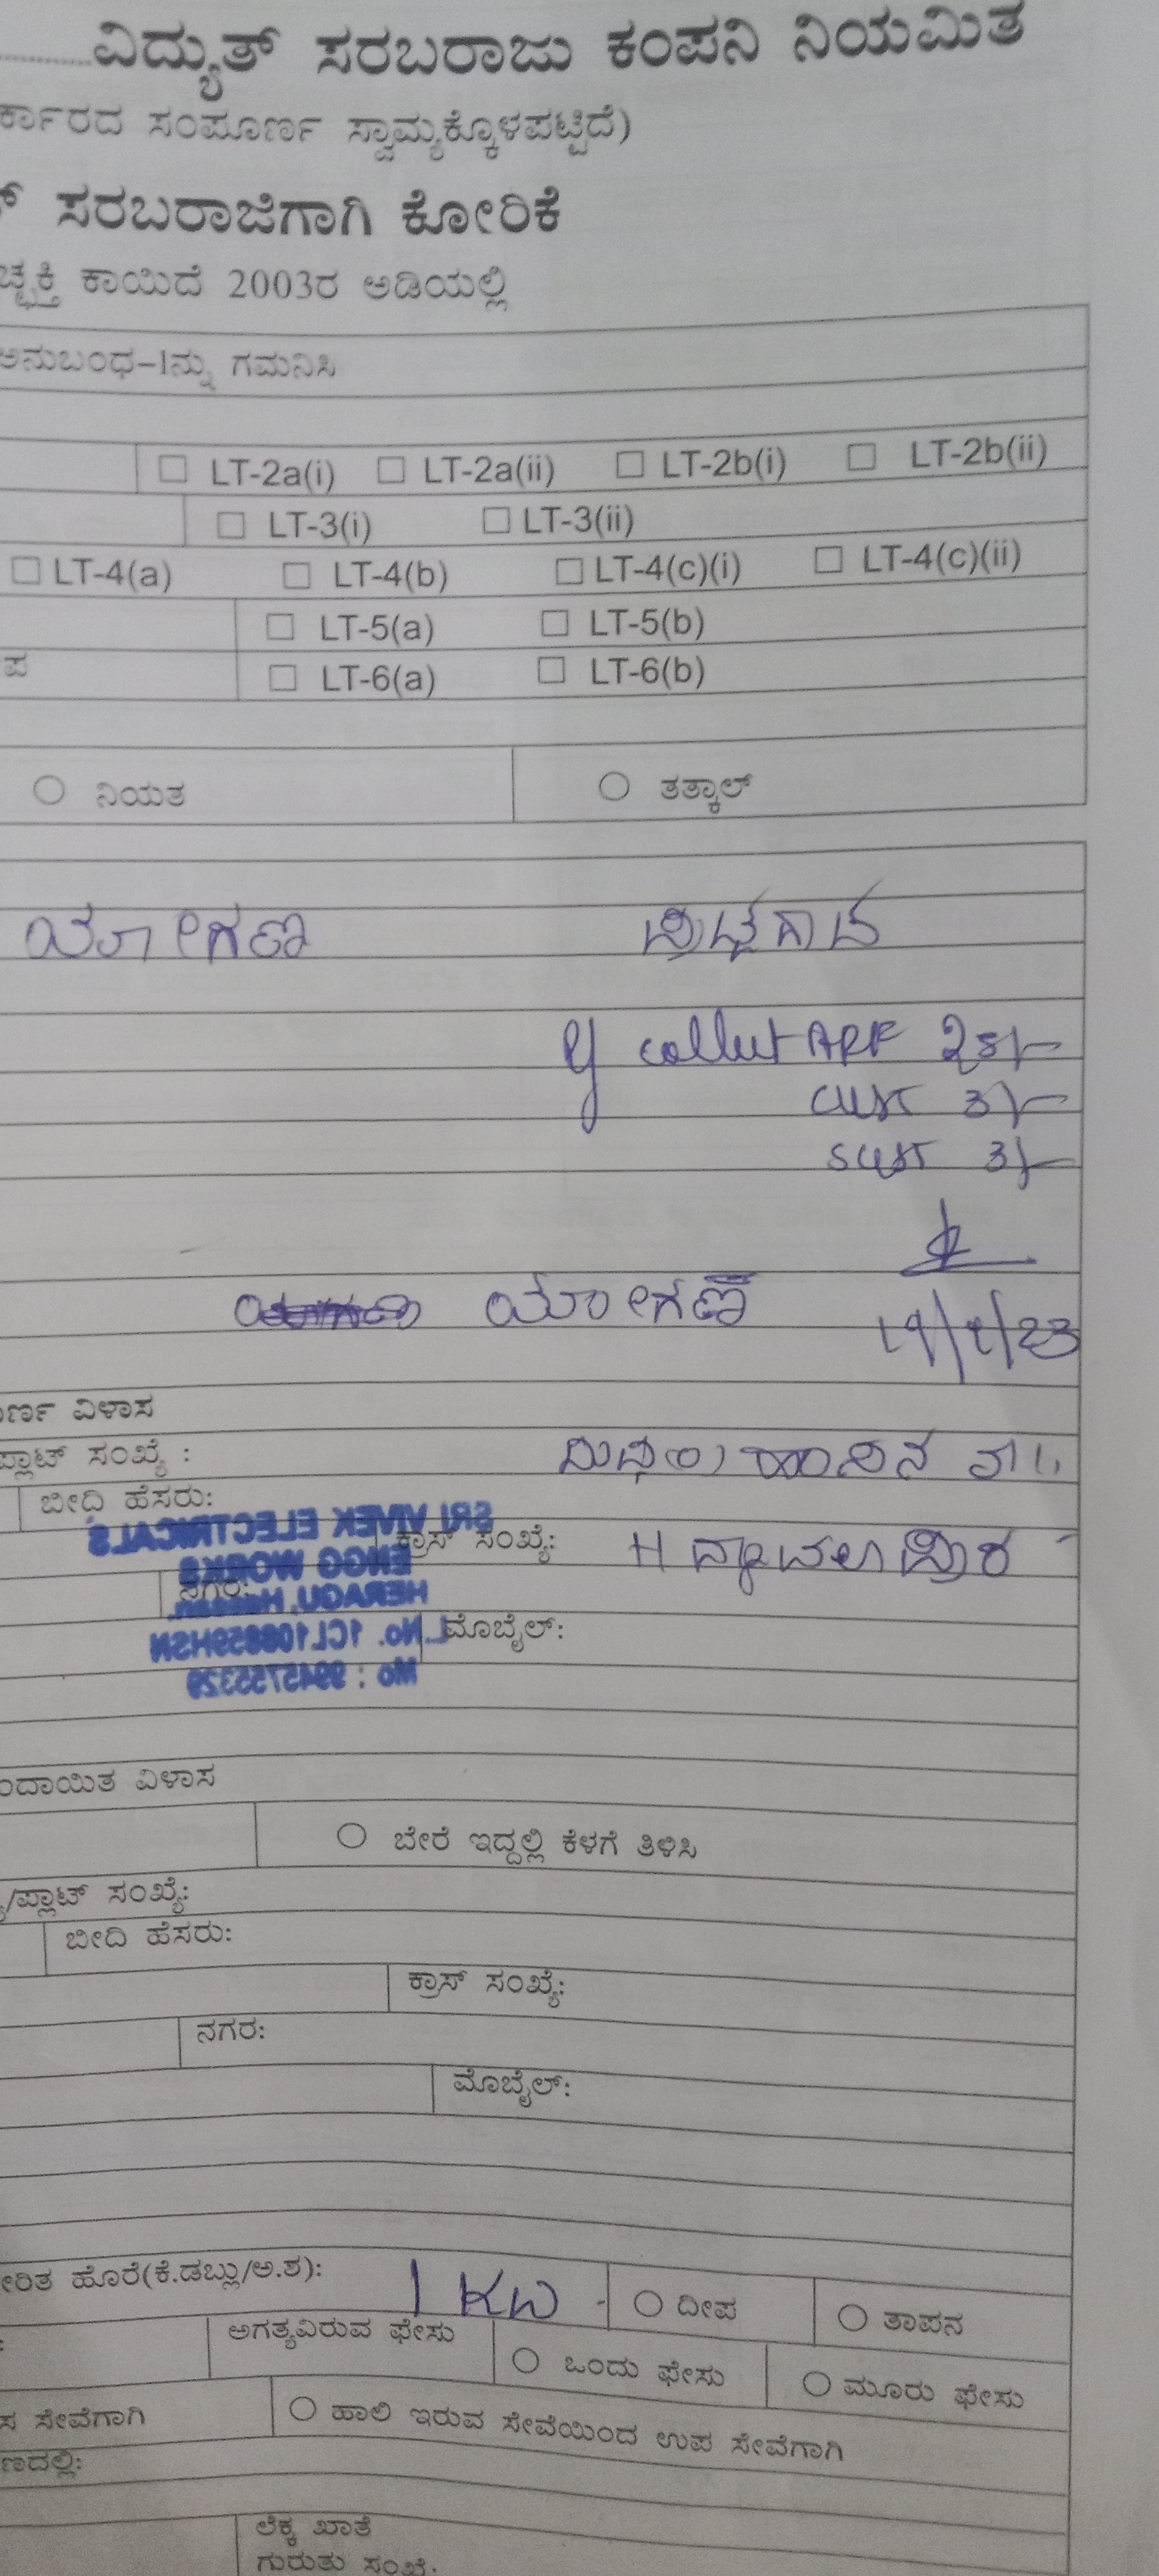 ವಿದ್ಯುತ್ ಸರಬರಾಜು ಕಂಪನಿ ನಿಯಮಿತ
ರ್ಕಾರದ ಸಂಪೂರ್ಣ ಸ್ವಾಮ್ಯಕ್ಕೊಳಪಟ್ಟಿದೆ)
ಸರಬರಾಜಿಗಾಗಿ ಕೋರಿಕೆ
ಚ್ಛಕ್ತಿ ಕಾಯಿದೆ 2003ರ ಅಡಿಯಲ್ಲಿ
ಅನುಬಂಧ–Iನ್ನು ಗಮನಿಸಿ
LT-2a(i) LT-2a(ii) LT-2b(i) LT-2b(ii)
LT-3(i) LT-3(ii)
LT-4(a) LT-4(b) LT-4(c)(i) LT-4(c)(ii)
LT-5(a) LT-5(b)
ಪ LT-6(a) LT-6(b)
ನಿಯತ ತತ್ಕಾಲ್
ಯೋಗಣ
collect ARF 25/-
CGST 3/-
SGST 3/-
ಯೋಗಣ
ರ್ಣ ವಿಳಾಸ
ಪ್ಲಾಟ್ ಸಂಖ್ಯೆ :
ಬೀದಿ ಹೆಸರು:
SRI VIVEK ELECTRICALS
ಕ್ರಾಸ್ ಸಂಖ್ಯೆ:
ENGG WORKS
ನಗರ:
HERAGU, HASSAN
ಮೊಬೈಲ್:
L.No. 1CL108859HSN
Mo : 9945755329
ಂದಾಯಿತ ವಿಳಾಸ
ಬೇರೆ ಇದ್ದಲ್ಲಿ ಕೆಳಗೆ ತಿಳಿಸಿ
/ಪ್ಲಾಟ್ ಸಂಖ್ಯೆ:
ಬೀದಿ ಹೆಸರು:
ಕ್ರಾಸ್ ಸಂಖ್ಯೆ:
ನಗರ:
ಮೊಬೈಲ್:
ೇರಿತ ಹೊರೆ(ಕೆ.ಡಬ್ಲ್ಯು/ಅ.ಶ): 1 KW ದೀಪ ತಾಪನ
ಅಗತ್ಯವಿರುವ ಫೇಸು ಒಂದು ಫೇಸು ಮೂರು ಫೇಸು
ಸ ಸೇವೆಗಾಗಿ ಹಾಲಿ ಇರುವ ಸೇವೆಯಿಂದ ಉಪ ಸೇವೆಗಾಗಿ
ಣದಲ್ಲಿ:
ಲೆಕ್ಕ ಖಾತೆ
ಗುರುತು ಸಂಖ್ಯೆ: